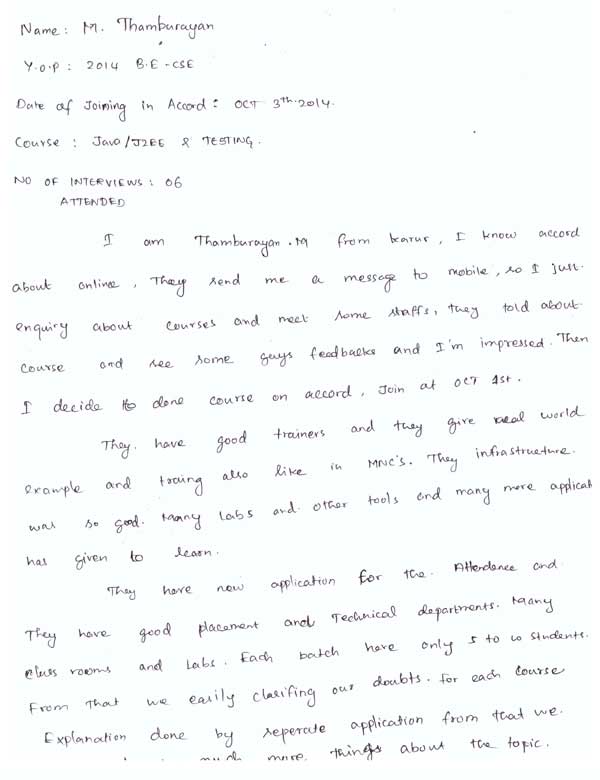 Name: M. Thamburayan
Y.O.P : 2014 B.E-CSE
Date of Joining in Accord: OCT 3th.2014.
Course : Java/J2EE & TESTING.
NO OF INTERVIEWS: 06
ATTENDED
I am Thamburayan.M from karur, I know accord
about online, They send me a message to mobile, so I just.
enquiry about courses and meet some staffs, they told about
course and see some guys feedbacks and I'm impressed. Then
I decide to done course on accord, Join at OCT 1st.
They have good trainers and they give real world
example and traing also like in MNC's. They infrastructure.
was so good. Many Labs and other tools and many more applicat
has given to learn.
They have new application for the. Attendance and
They have good placement and Technical departments. Many
class rooms and Labs. Each batch have only 5 to 10 students.
From that we easily clarifing our doubts. for each course
Explanation done by seperate application from that we.
much more things about the topic.